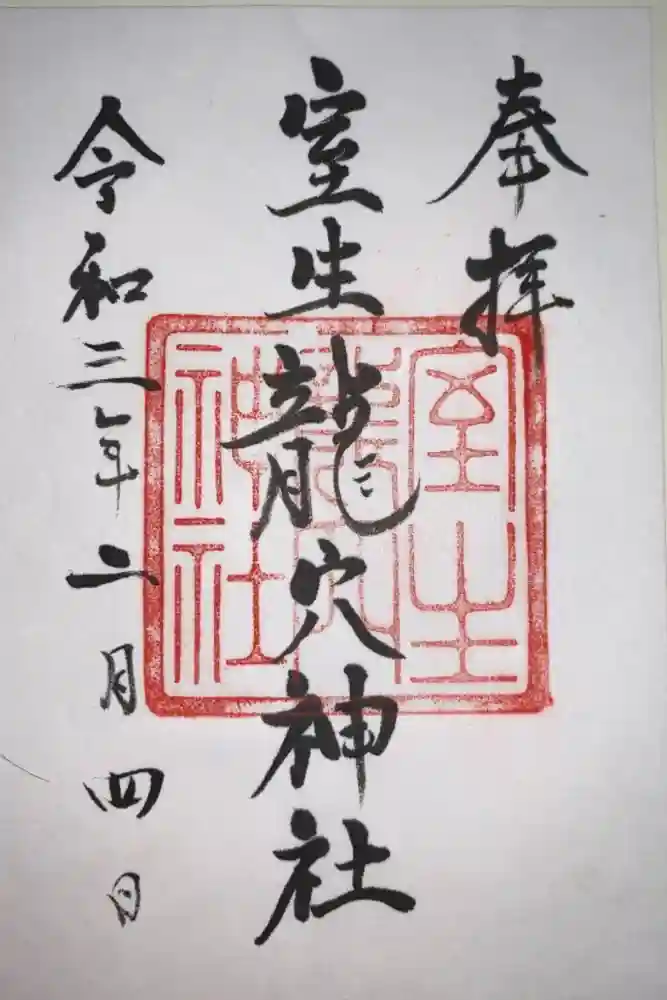 奉拝
室生龍穴神社
令和三年二月四日
室生
龍穴
神社